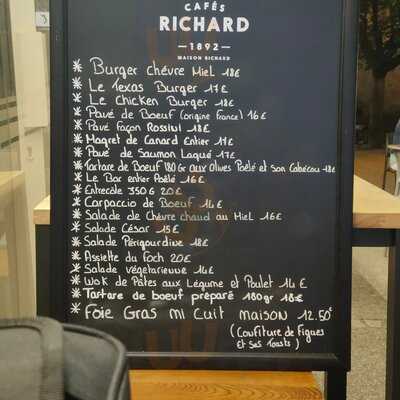 CAFÉS
RICHARD
1892
MAISON RICHARD
* Burger Chévre Miel 18€
* Le Texas Burger 17€
* Le Chicken Burger 18€
* Pavé de Boeuf (origine France) 16€
* Pavé Façon Rossini 18€
* Magret de Canard Entier 17€
* Pavé de Saumon Laqué 17€
* Tartare de Boeuf 180 Gr aux Olives Poêlé et son Cabécou 18€
* Le Bar entier Poêlé 16€
* Entrecôte 350G 20€
* Carpaccio de Boeuf 14€
* Salade de Chèvre chaud au Miel 16€
* Salade César 15€
* Salade Périgourdine 18€
* Assiette du Foch 20€
* Salade végétarienne 14€
* Wok de Pâtes aux Légume et Poulet 14€
* Tartare de boeuf préparé 180gr 18€
* Foie Gras mi cuit maison 12.50€
(Confiture de Figues
et Ses Toasts)